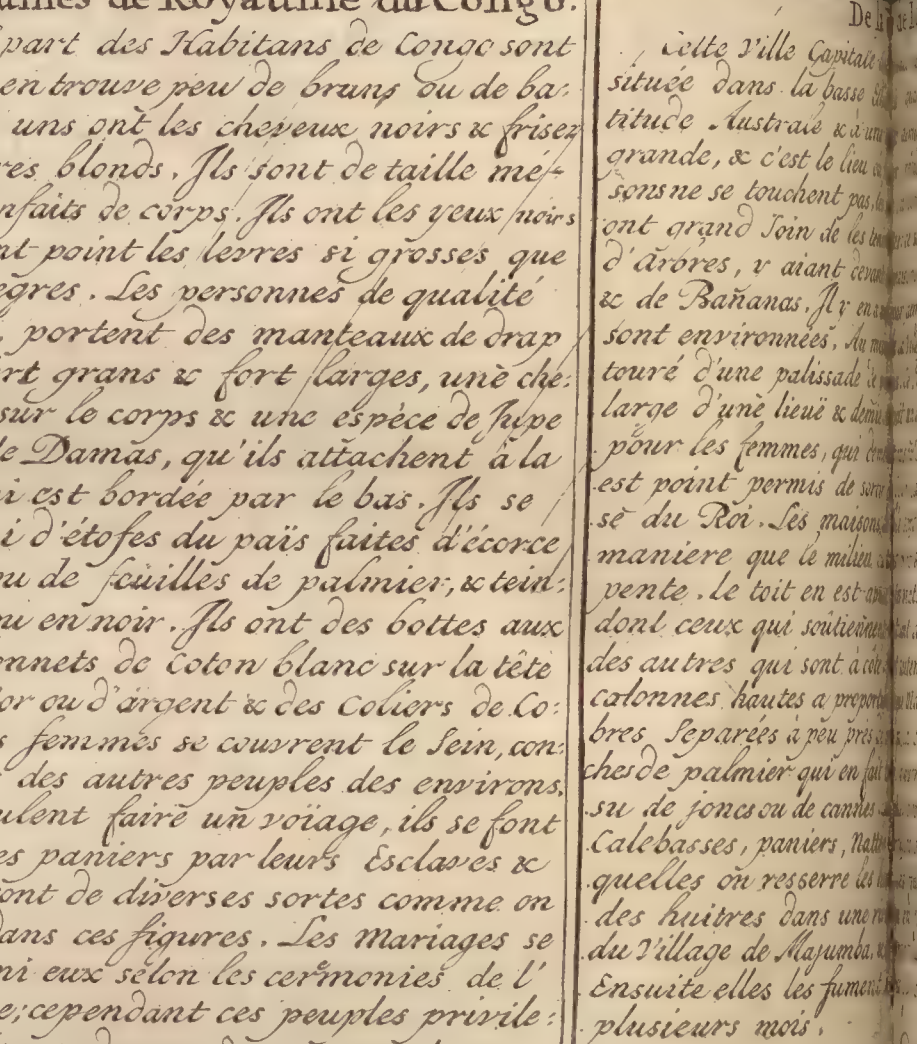 de Royaume du Congo.
part des Habitans de Congo sont
en trouve peu de bruns ou de ba:
uns ont les cheveux noirs & frisez
res blonds. Ils sont de taille mé-
nfaits de corps. Ils ont les yeux noirs
nt point les levres si grosses que
egres. Les personnes de qualité
portent des manteaux de drap
rt grans & fort larges, une che:
sur le corps & une espèce de Jupe
de Damas, qu'ils attachent à la
i est bordée par le bas. Ils se
i d'étofes du païs faites d'écorce
ou de feüilles de palmier, & tein:
ou en noir. Ils ont des bottes aux
onnets de Coton blanc sur la tête
or ou d'argent & des Coliers de Co:
s femmes se couvrent le Sein, con:
des autres peuples des environs.
ulent faire un voïage, ils se font
es paniers par leurs Esclaves &
ont de diverses sortes comme on
dans ces figures. Les Mariages se
mi eux selon les ceremonies de l'
e; cependant ces peuples privile:
De la
Cette Ville Capitale
située dans la basse
titude Australe & à une
grande, & c'est le lieu
sons ne se touchent pas,
ont grand Soin de les
d'Arbres, y aiant devant
& de Bañanas. Il y en a
sont environnées. Au
touré d'une palissade de
large d'une lieuë & demie
pour les femmes, qui
est point permis de sortir
se du Roi. Les maisons
maniere que le milieu
pente. le toit en est
dont ceux qui soûtiennent
des autres qui sont à côté
calonnes hautes a proportion
bres Separées à peu près
ches de palmier qui en fait
su de joncs ou de cannes
Calebasses, paniers, Nattes
quelles on resserre les
des huitres dans une
du Village de Majumba, &
Ensuite elles les fument
plusieurs mois.